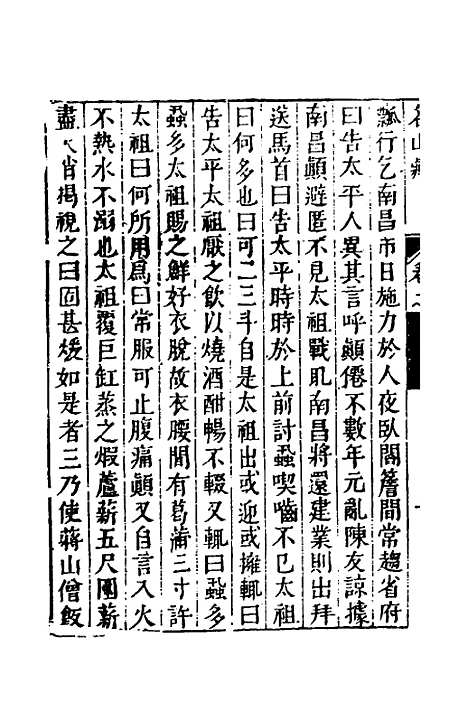 名山藏
卷之
瓢行乞南昌市日施力於人夜臥閣簷間常趨省府
曰告太平人異其言呼顛僊不數年元亂陳友諒據
南昌顛避匿不見太祖戰取南昌將還建業則出拜
送馬首曰告太平時時於上前討蝨喫嚙不已太祖
曰何多也曰可二三斗自是太祖出或迎或擁輒曰
告太平太祖厭之飲以燒酒酣暢不輟又輒曰蝨多
蝨多太祖賜之鮮好衣脫故衣腰間有菖蒲三寸許
太祖曰何所用爲曰常服可止腹痛顛又自言入火
不熱水不溺也太祖覆巨缸蒸之煆蘆薪五尺圍薪
盡火消揭視之曰固甚煖如是者三乃使蔣山僧飯